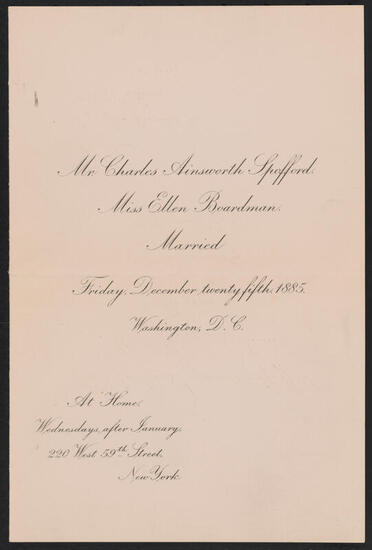 Mr. Charles Ainsworth Spofford.
Miss Ellen Boardman.
Married
Friday, December, twenty fifth, 1885.
Washington, D. C.
At Home,
Wednesdays, after January,
220 West 59th Street,
New York.